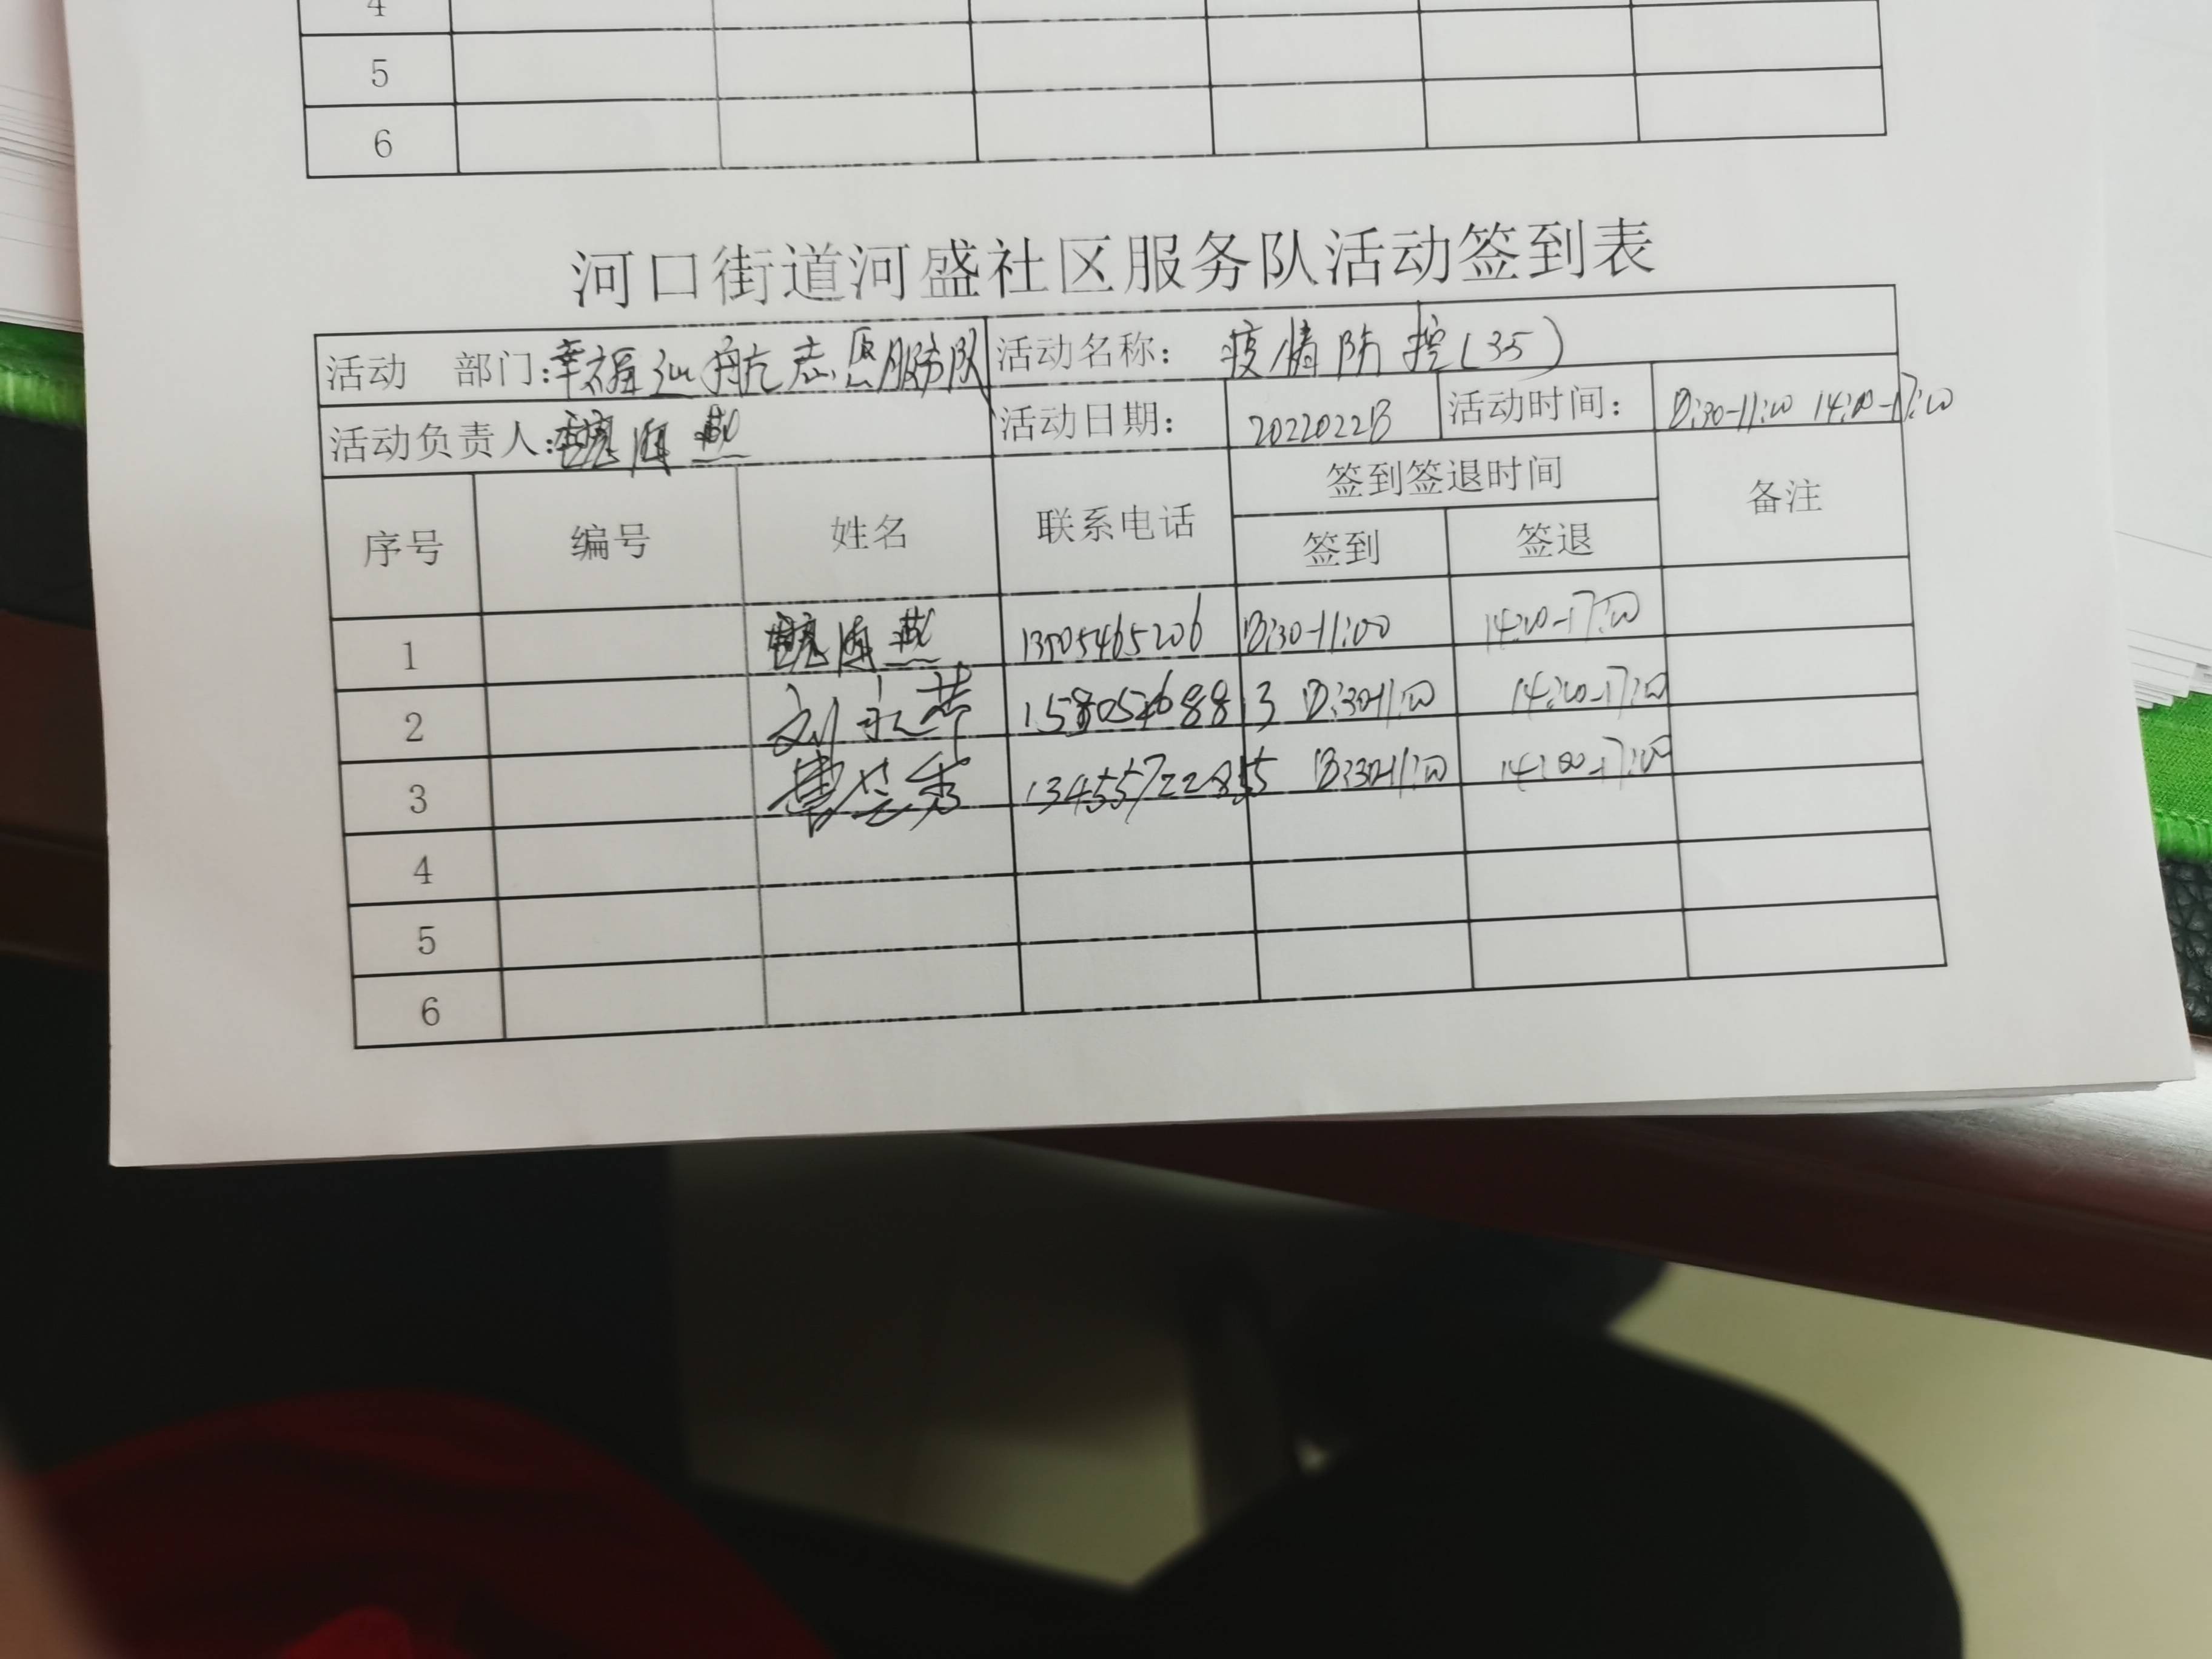 4
5
6
河口街道河盛社区服务队活动签到表
活动 部门:幸福汕航志愿服务队 活动名称: 疫情防控(35)
活动负责人: 海燕 活动日期: 活动时间: 8:30-11:00 14:00-17:00
序号 编号 姓名 联系电话 签到签退时间 备注
签到 签退
1 海燕 8:30-11:00 14:00-17:00
2 刘永 8:30-11:00 14:00-17:00
3 秀 13455722855 8:30-11:00 14:00-17:00
4
5
6